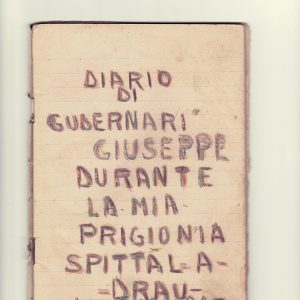 DIARIO
DI
GUDERNARI
GIUSEPPE
DURANTE
LA MIA
PRIGIONIA
SPITTAL-A-
-DRAU-